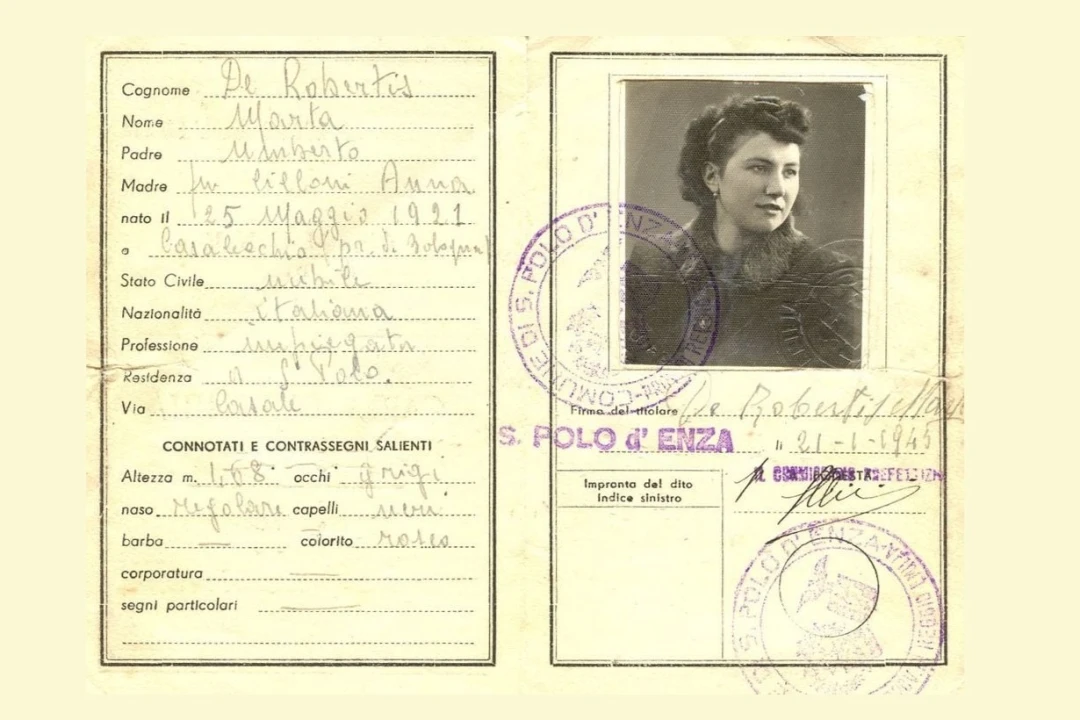 Cognome De Robertis
Nome Marta
Padre Umberto
Madre fu Cilloni Anna
nato il 25 Maggio 1921
a Casalecchio pr. di Bologna
Stato Civile nubile
Nazionalità italiana
Professione impiegata
Residenza a S. Polo.
Via Casale
CONNOTATI E CONTRASSEGNI SALIENTI
Altezza m. 1,68 occhi grigi
naso regolare capelli neri
barba — colorito roseo
corporatura —
segni particolari —
COMUNE DI S. POLO D'ENZA
Firma del titolare De Robertis
S. POLO d' ENZA
" 21-1-1945
Impronta del dito
indice sinistro
IL COMMISSARIO PREFETTIZIO
S. POLO D'ENZA